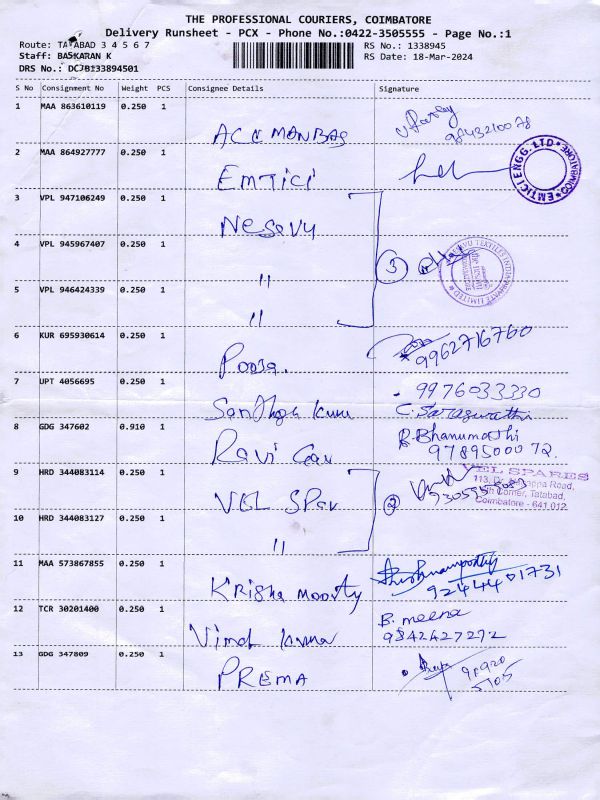 THE PROFESSIONAL COURIERS, COIMBATORE
Delivery Runsheet - PCX - Phone No.:0422-3505555 - Page No.:1
Route: TATABAD 3 4 5 6 7
RS No.: 1338945
Staff: BASKARAN K
RS Date: 18-Mar-2024
DRS No.: DCJB133894501
S No Consignment No Weight PCS Consignee Details Signature
1 MAA 863610119 0.250 1
ACE MONBAG 9843210078
2 MAA 864927777 0.250 1
EMTICI EMTICI ENGG. LTD COIMBATORE
3 VPL 947106249 0.250 1
Nesavu
4 VPL 945967407 0.250 1
" 3
5 VPL 946424339 0.250 1
"
6 KUR 695930614 0.250 1
Pooja. 9962716760
7 UPT 4056695 0.250 1
9976033330
Santhosh kumar C. Saraswathi
8 GDG 347602 0.910 1
R. Bhanumathi
Ravi 9789500072.
9 HRD 344083114 0.250 1
VEL SPARES
VEL SPar 2
Corner, Tatabad,
Coimbatore - 641 012.
10 HRD 344083127 0.250 1
"
11 MAA 573867855 0.250 1
Krishnamoorthy
Krisha moorty 9244401731
12 TCR 30201400 0.250 1
B. meena
Vimal kumar 9842627272
13 GDG 347809 0.250 1
PREMA